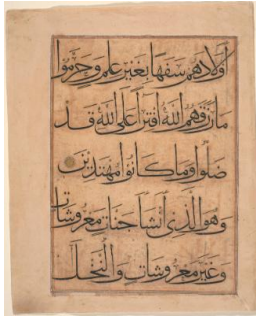 أولادهم سفها بغير علم وحرموا
ما رزقهم الله افتراء على الله قد
ضلوا وما كانوا مهتدين
وهو الذي أنشأ جنات معروشات
وغير معروشات والنخل